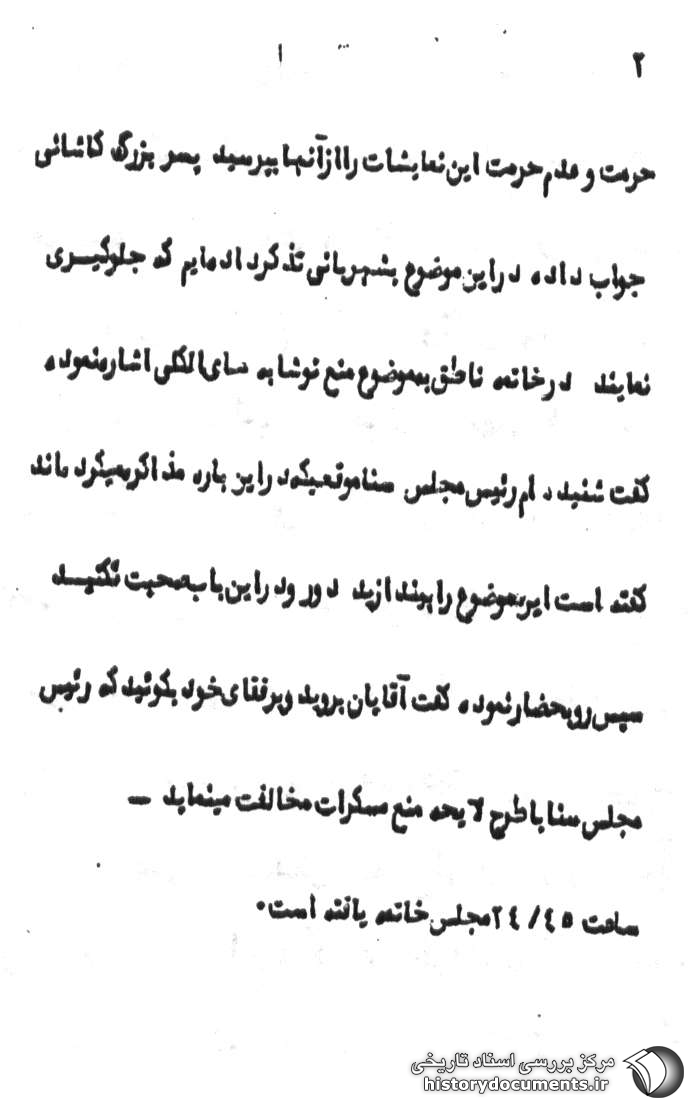 ۲
حرمت و عدم حرمت این نمایشات را ازآنها بپرسید پسر بزرگ کاشانی
جواب داده دراین موضوع بشهربانی تذکرداده‌ایم که جلوگیری
نمایند درخاتمه ناطق بموضوع منع نوشابه های الکلی اشاره‌نموده
گفت شنیده ام رئیس مجلس سنا موقعیکه دراین باره مذاکره میکرده‌اند
گفته است این موضوع را بیندازید دور و دراین باب صحبت نکنید
سپس رو بحضار نموده گفت آقایان بروید وبرفقای خود بگوئید که رئیس
مجلس سنا با طرح لایحه منع مسکرات مخالفت مینماید —
ساعت ۲٤/٤٥ مجلس خاتمه یافته است.
مرکز بررسی اسناد تاریخی
historydocuments.ir